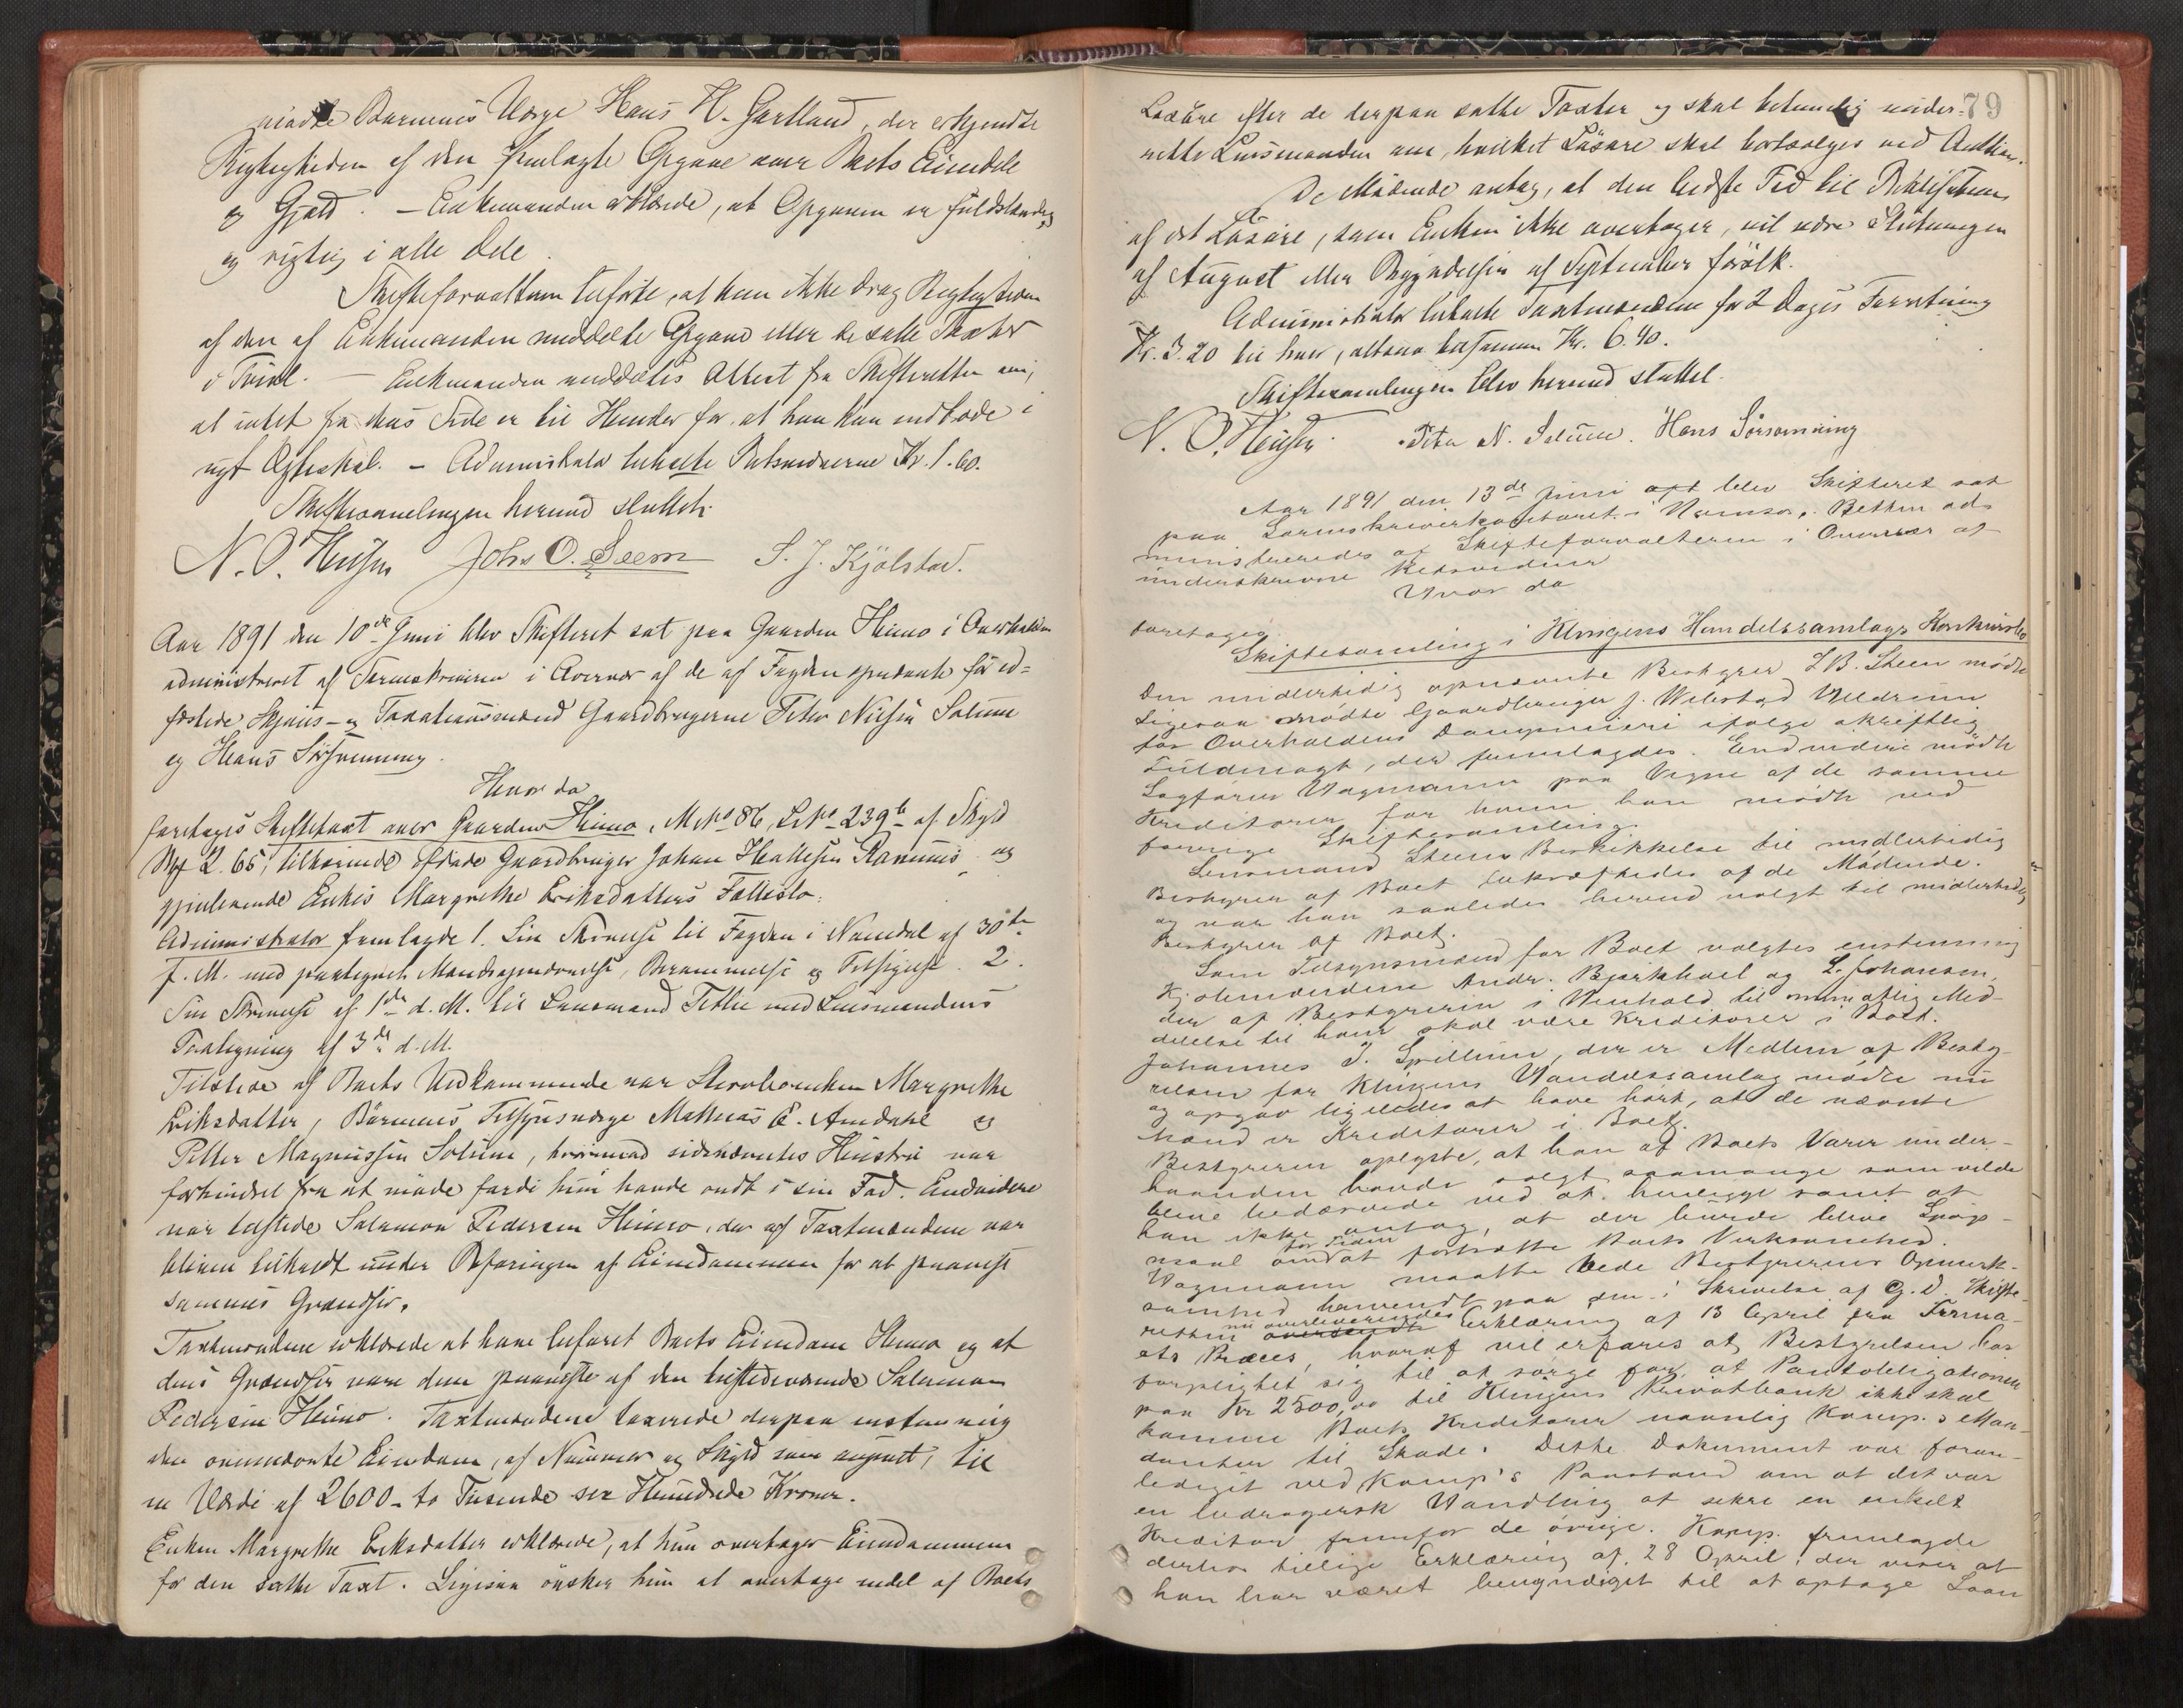 mødte Barnenes Værge Hans H. Gartland, der erkjendte
Rigtigheden af den fremlagte Opgave over Boets Eiendele
og Gjæld. – Enkemanden erklærede, at Opgaven er fuldstændig
og rigtig i alle Dele.
Skifteforvalteren tilførte, at han ikke drog Rigtigheden
af den af Enkemanden meddelte Opgave eller de satte Taxter
i Tvivl. – Enkemanden meddeltes Attest fra Skifteretten om,
at intet fra dens Side er til Hinder for, at han kan indtræde i
nyt Ægteskab. – Administrator betalte Retsvidnerne Kr. 1.60.
Skiftesamlingen herved sluttet.
Johs O. Seem S. J. Kjølstad.
Aar 1891 den 10de Juni blev Skifteret sat paa Gaarden Himo i Overhalden
administreret af Sorenskriveren i Overvær af de af Fogden opnævnte før ed=
fæstede Skjøns- og Taxationsmænd Gaardbrugerne Peter Nilsen Solum
og Hans Sørsømning.
Hvor da
foretoges Skiftetaxt over Gaarden Himo, M No 86, L No 239b af Skyld
Mk 2.65, tilhørende afdøde Gaardbruger Johan Ranumis og
gjenlevende Enkes Margrethe Eriksdatters Fællesbo.
Administrator fremlagde 1. Sin Skrivelse til Fogden i Namdal af 30te
f. M. med paategnet Mandsopnævnelse, Berammelse og Tilsigelse. 2.
Sin Skrivelse af 1ste d. M. til Lensmand med Lensmandens
Paategning af 3de d. M.
Tilstede af Boets Vedkommende var Stervboenken Margrethe
Eriksdatter, Børnenes Tilsynsværge Mathias E. Amdahl og
Petter Magnussen Solum, hvorimod sidstnævntes Hustru var
forhindret fra at møde fordi hun havde ondt i sin Fod. Endvidere
var tilstede Salamon Pedersen Himo, der af Taxtmændene var
bleven tilkaldt under Befaringen af Eiendommen for at paavise
sammes Grændser.
Taxtmændene erklærede at have befaret Boets Eiendom Himo og at
dens Grændser vare dem paaviste af den tilstedeværende Salamon
Pedersen Himo. Taxtmændene taxerede derpaa enstemmig
den ovennævnte Eiendom, af Nummer og Skyld som anført, til
en Værdi af 2600 – to Tusende sex Hundrede Kroner.
Enken Margrethe Eriksdatter erklærede, at hun overtager Eiendommen
for den satte Taxt. Ligesaa ønsker hun at overtage endel af Boets
79
Løsøre efter de derpaa satte Taxter og skal betimelig under-
rette Lensmanden om, hvilket Løsøre skal bortsælges ved Auktion.
De Mødende antog, at den bedste Tid til Realisation
af det Løsøre, som Enken ikke overtager, vil være Slutningen
af August eller Begyndelsen af September førstk.
Administrator betalte Taxtmændene for 2 Dages Forretning
Kr. 3.20 til hver, altsaa tilsammen Kr. 6.40.
Skiftesamlingen blev herved sluttet.
Peter N. Solum. Hans Sørsømning
Aar 1891 den 13de Juni blev Skifteret sat
paa Sorenskriverkontoret i Namsos. Retten ad-
ministreredes af Skifteforvalteren i Overvær af
underskrevne Retsvidner
Hvor da
foretoges
Skiftesamling i Klingens Handelssamlags Konkursbo
Den midlertidig opnævnte Bestyrer L B. Steen mødte
Ligesaa mødte Gaardbruger J. Weberstad
for Overhaldens Dampmeieri ifølge skriftlig
Fuldmagt, der fremlagdes. Endvidere mødte
Sagfører Wagmann paa Vegne af de samme
Kreditorer for hvem han mødte ved
forrige Skiftesamling.
Lensmand Steens Beskikkelse til midlertidig
Bestyrer af Boet bekræftedes af de Mødende.
og var han saaledes herved valgt til midlertidig
Bestyrer af Boet.
Som Tilsynsmænd for Boet valgtes enstemmig
Andr. Bjørkhaal og L. Johansen,
der af Bestyreren i Henhold til mundtlig Med-
delelse til ham skal være Kreditorer i Boet.
Johannes J. Spillum, der er Medlem af Besty-
relsen for Klingens Handelssamlag mødte nu
og opgav ligeledes at have hørt, at de nævnte
Mænd er Kreditorer i Boet.
Bestyreren oplyste, at han af Boets Varer under-
haanden havde solgt saamange som vilde
blive bedærvede ved at henligge samt at
han ikke antog, at der burde blive Spørgs-
maal om for Tiden at fortsætte Boets Virksomhed.
Wagmann maatte bede Bestyrerens Opmærk-
somhed henvendt paa den i Skrivelse af G. D. Skifte-
retten nu overleverede Erklæring af 13 April fra Firma-
ets Præces, hvoraf vil erfares at Bestyrelsen har
forpligtet sig til at sørge for, at Pantobligationen
paa Kr 2500,00 til Klingens Privatbank ikke skal
komme Boets Kreditorer navnlig Komp.s Man-
danter til Skade. Dette Dokument var foran-
lediget ved Komp's Paastand om at det var
en bedragersk Handling at sikre en enkelt
Kreditor fremfor de øvrige. Komp. fremlagde
derhos tillige Erklæring af 28 April, der viser at
han har været bemyndiget til at optage Laan